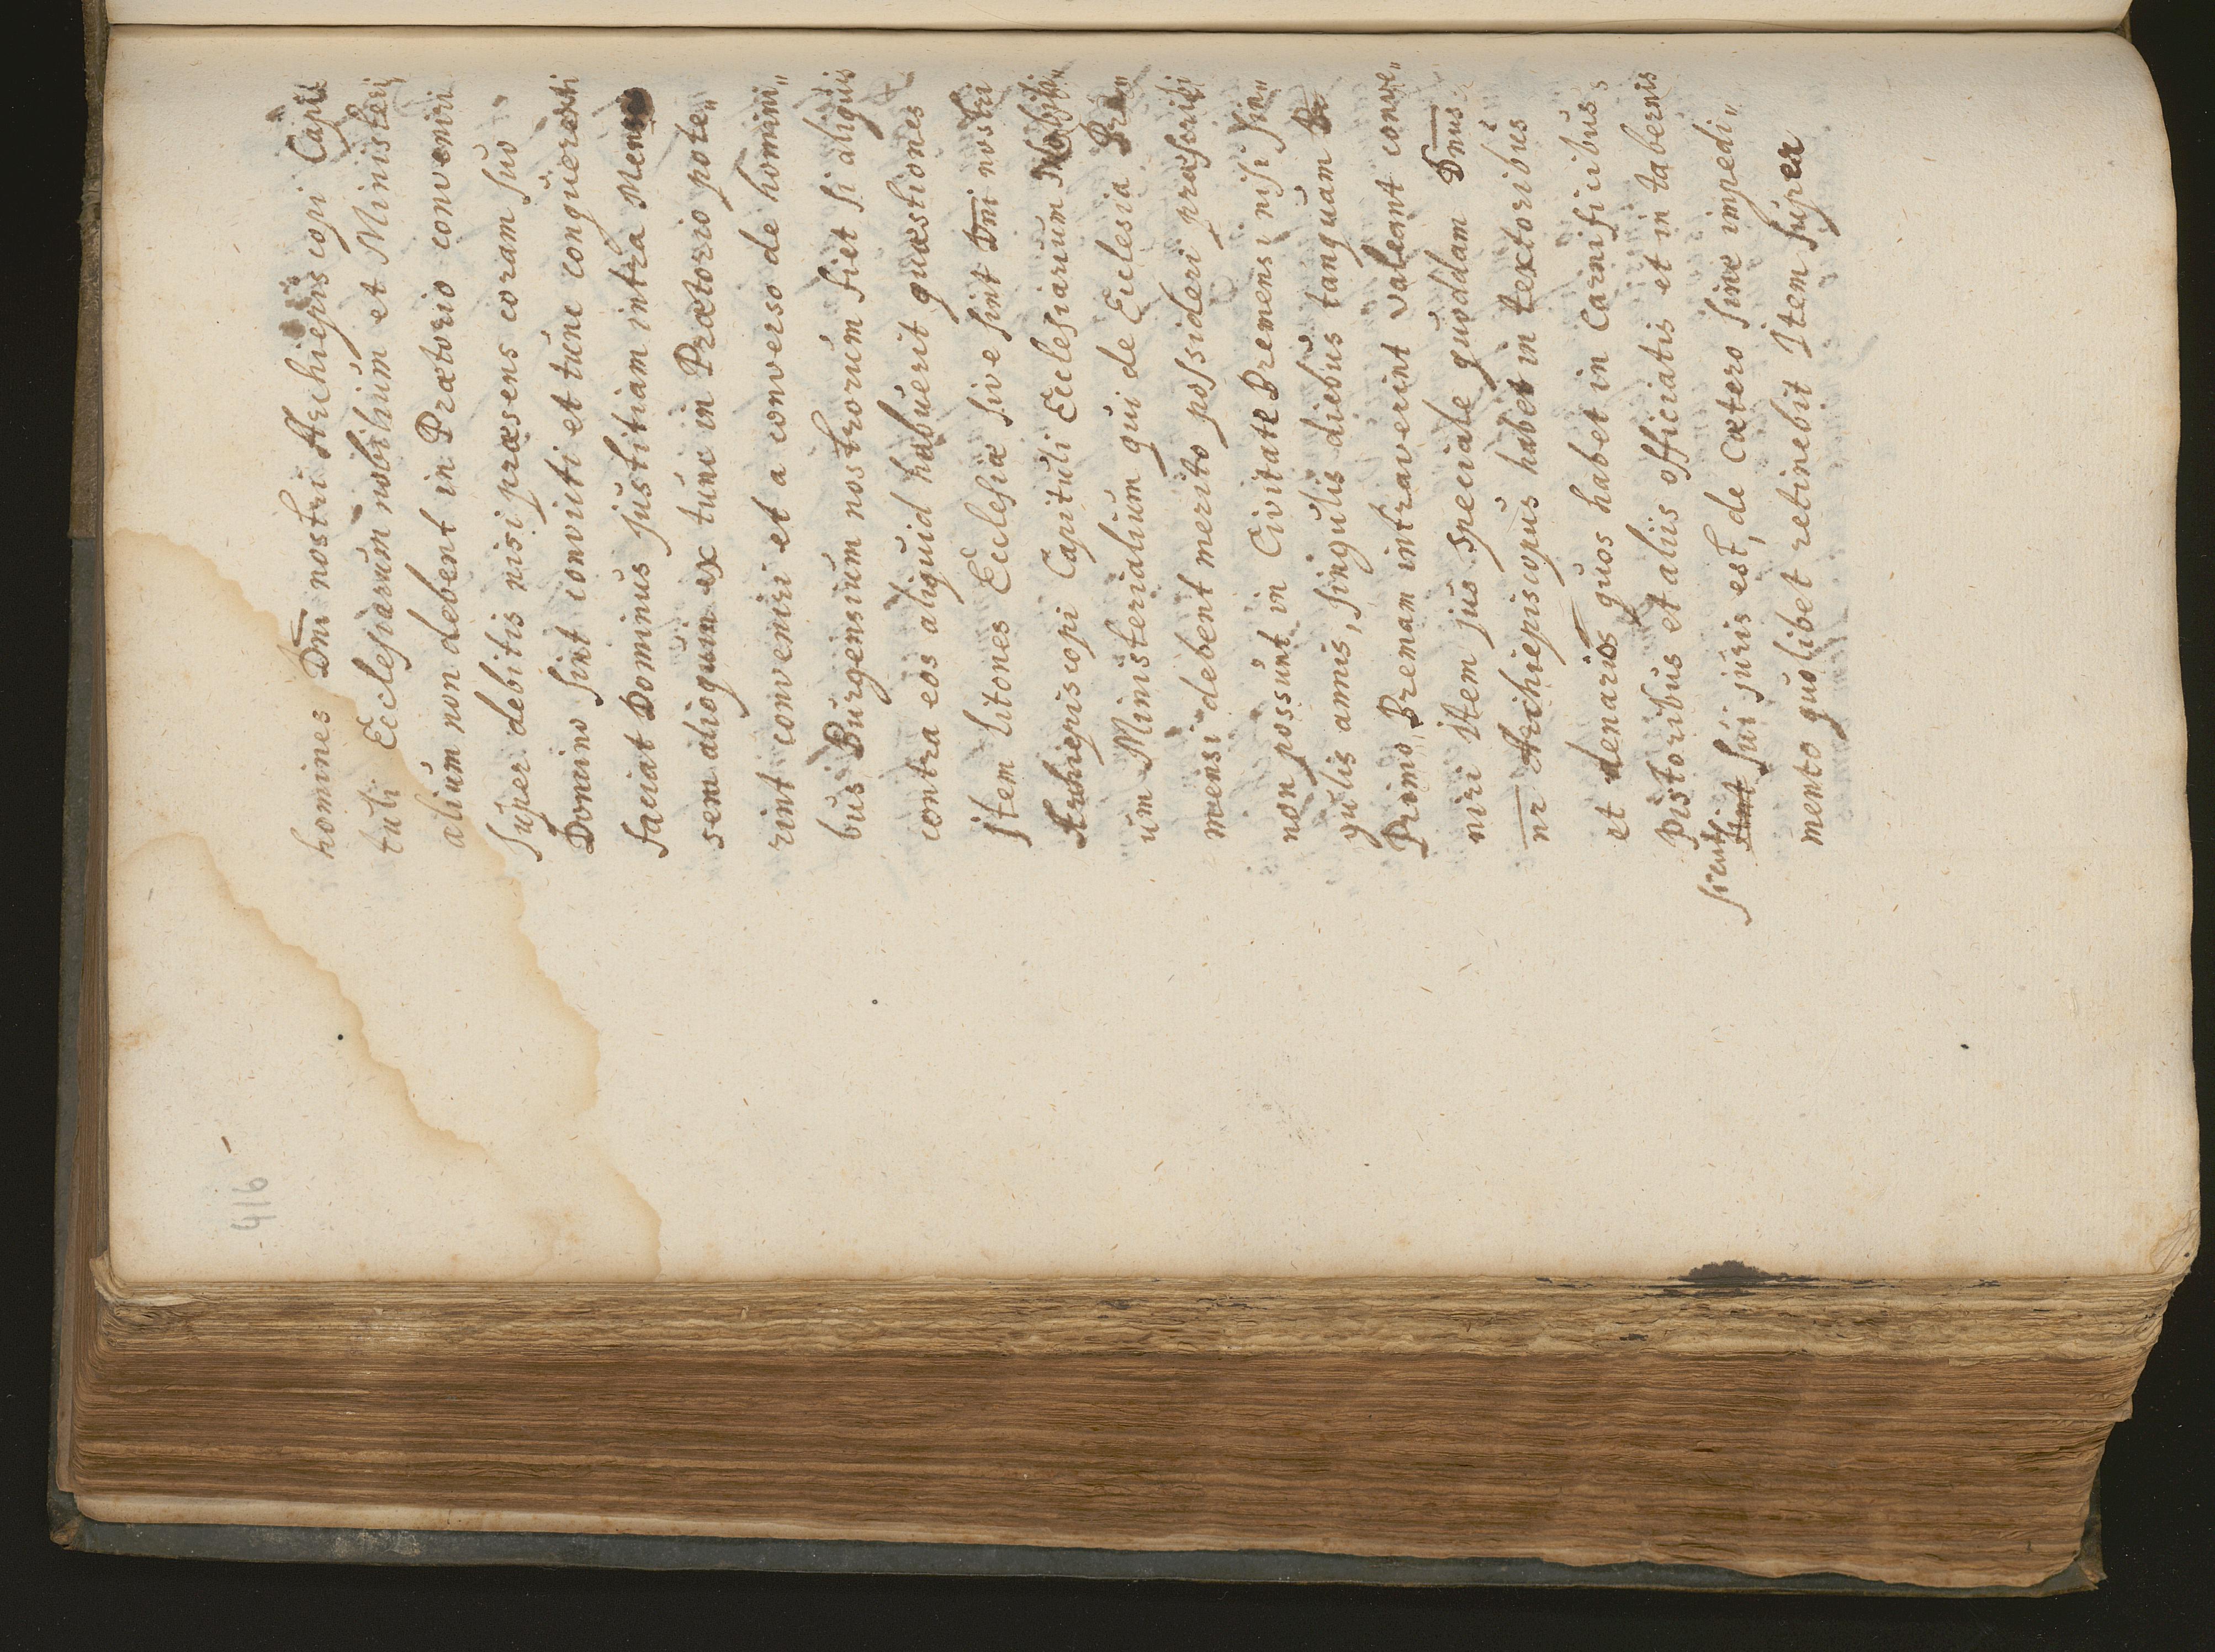 416
homines Dni nostri Archiepiscopi Capi
tuli Ecclesiarum nobilium et Ministeri
alium non debent in Prætorio conveniri
super debitis nisi præsens coram suo
Domino sint convicti et tunc conquerenti
faciat Dominus justitiam intra Men
sem alioquin ex tunc in Prætorio pote„
rint conveniri et a converso de homini„
bus Burgensium nostrorum fiet si aliquis
contra eos aliquid habuerit quæstiones
Item litones Ecclesiæ sive sint Dni nostri
Archiepiscopi Capituli Ecclesiarum Nobili„
um Ministerialium qui de Ecclesia Bre„
mensi debent merito possideri præscribi
non possunt in Civitate Bremensi nisi sin„
gulis annis, singulis diebus tanquam
Primo Bremam intraverint valeant conve„
niri Item jus speciale quoddam Dnus
nr Archiepiscopus habet in textoribus
et denarios quos habet in Carnificibus,
Pistoribus et aliis officiatis et in tabernis
sicut sui juris est, de Cætero sine impedi„
mento quolibet retinebit Item super